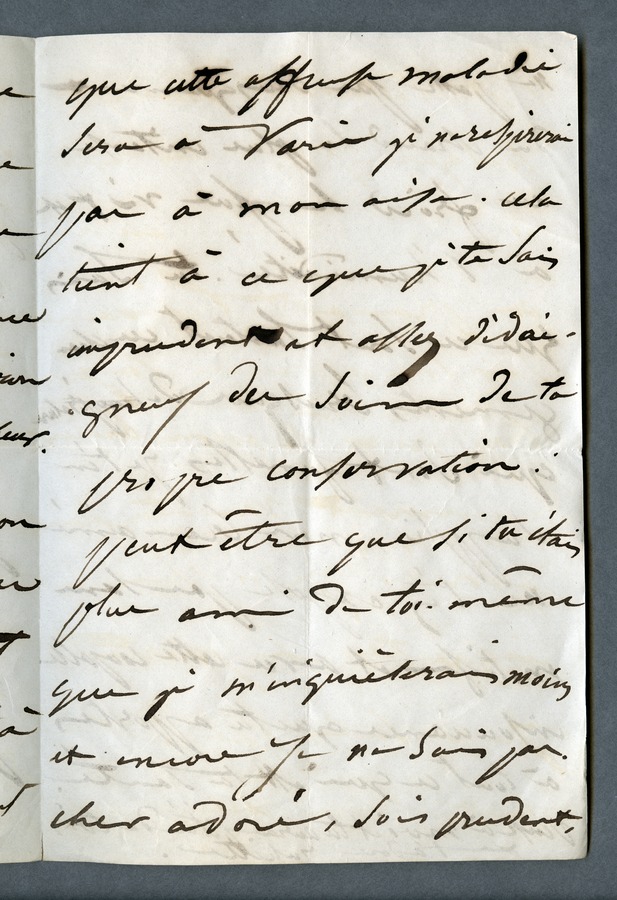 que cette affreuse maladie
sera à Paris je ne respirerai
pas à mon aise. cela
tient à ce que je te sais
imprudent et assez dédai-
gneux des soins de ta
propre conservation.
peut être que si tu étais
plus ami de toi-même
que je m'inquièterais moins
et encore je ne sais pas.
cher adoré, sois prudent,